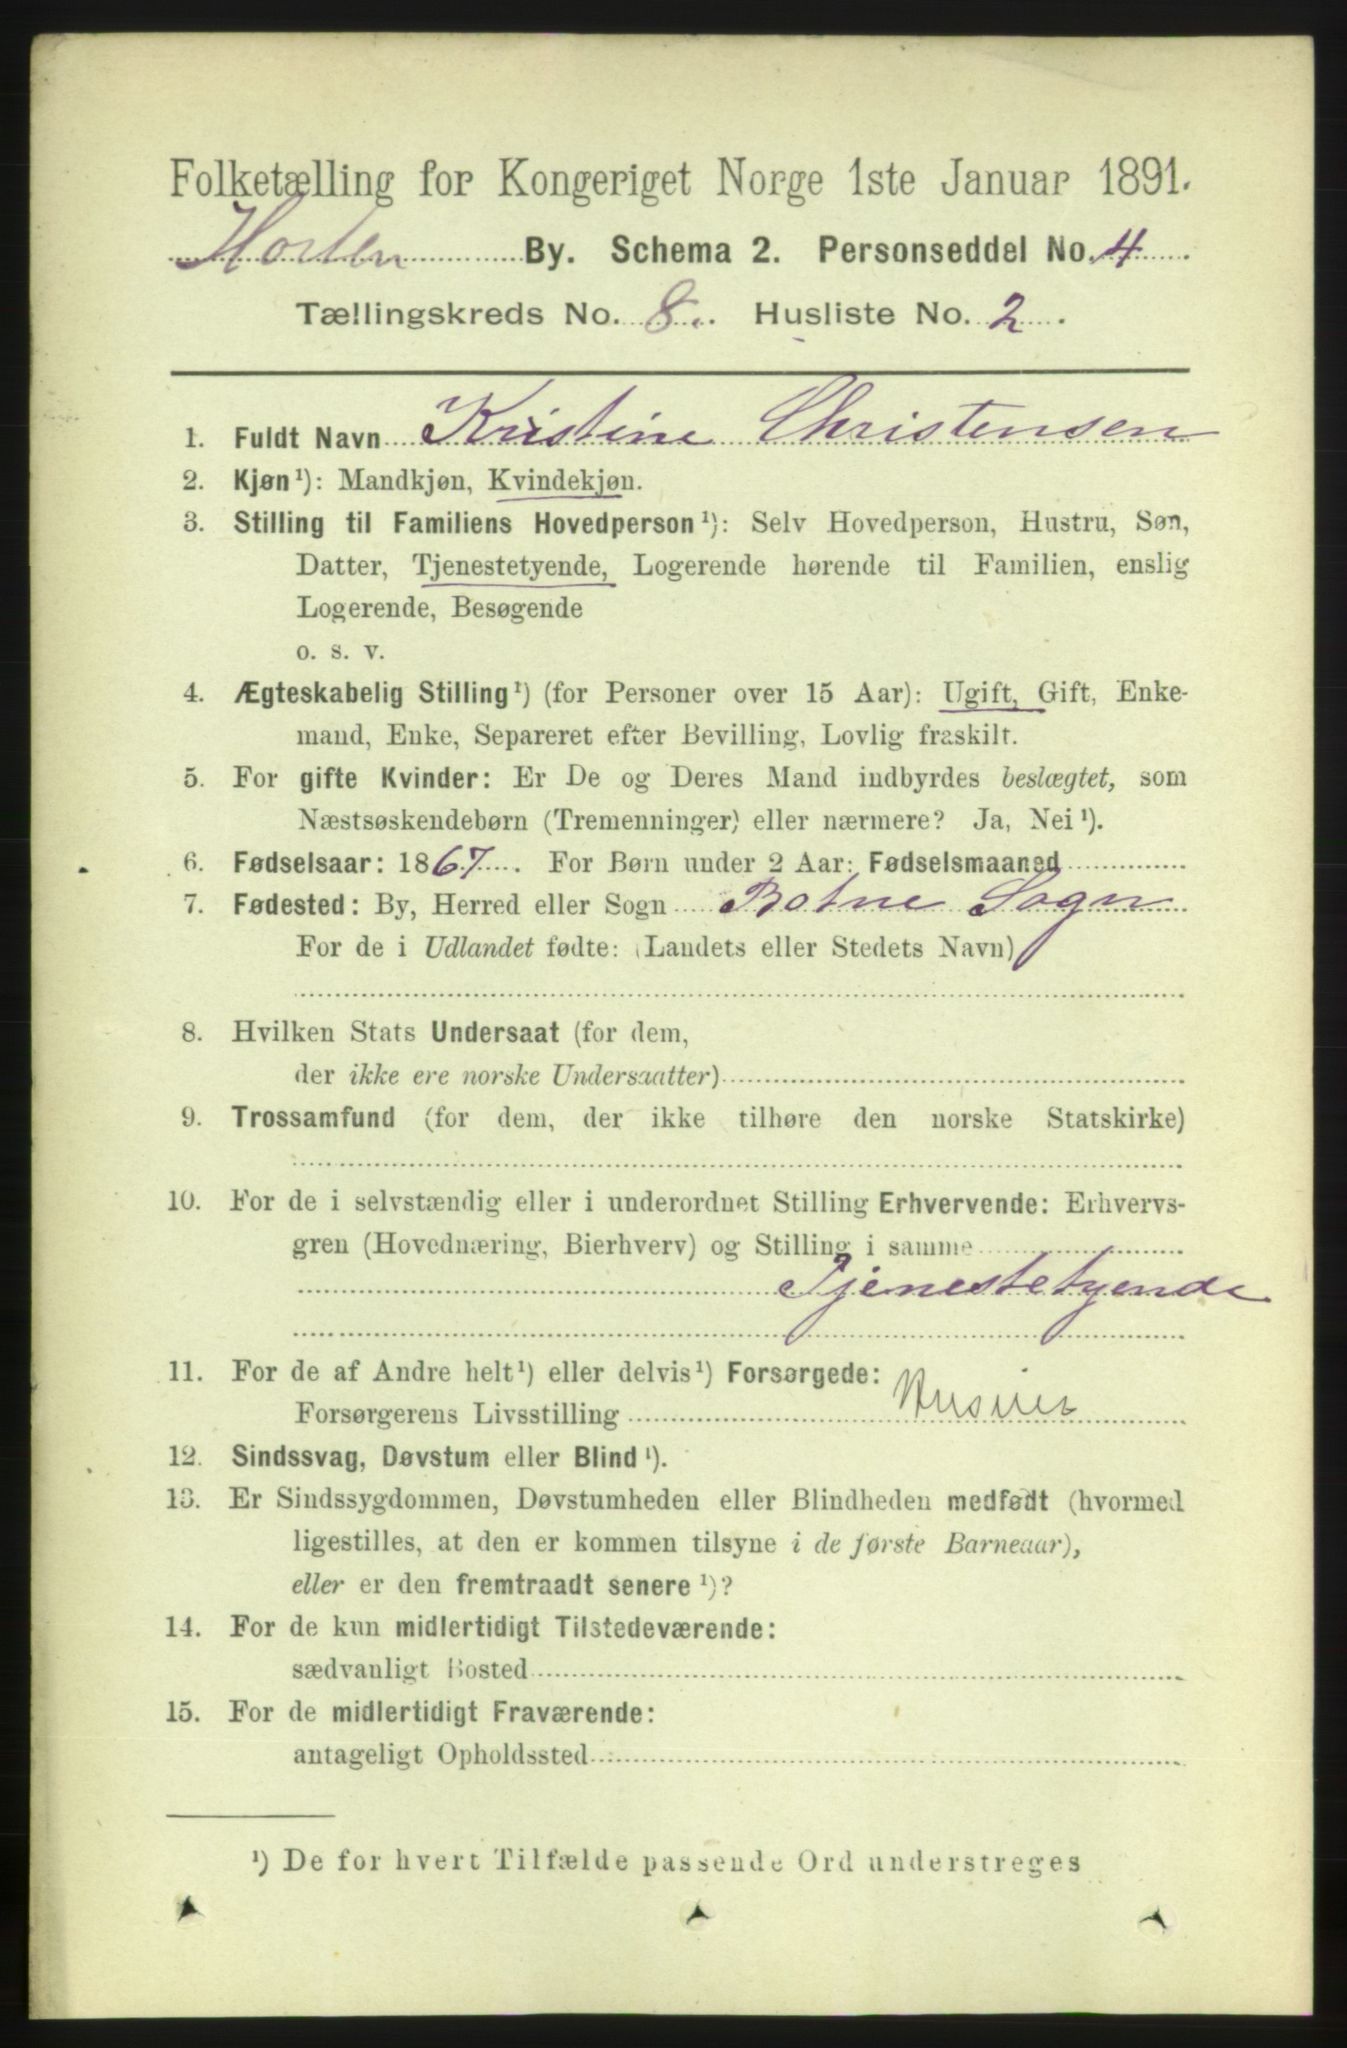 Folketælling for Kongeriget Norge 1ste Januar 1891.
Horten By. Schema 2. Personseddel No. 4
Tællingskreds No. 8. Husliste No. 2
1. Fuldt Navn Kristine Christensen
2. Kjøn¹): Mandkjøn, Kvindekjøn.
3. Stilling til Familiens Hovedperson¹): Selv Hovedperson, Hustru, Søn,
Datter, Tjenestetyende, Logerende hørende til Familien, enslig
Logerende, Besøgende
o. s. v.
4. Ægteskabelig Stilling¹) (for Personer over 15 Aar): Ugift, Gift, Enke-
mand, Enke, Separeret efter Bevilling, Lovlig fraskilt.
5. For gifte Kvinder: Er De og Deres Mand indbyrdes beslægtet, som
Næstsøskendebørn (Tremenninger) eller nærmere? Ja, Nei¹).
6. Fødselsaar: 1867. For Børn under 2 Aar: Fødselsmaaned
7. Fødested: By, Herred eller Sogn Botne Sogn
For de i Udlandet fødte: (Landets eller Stedets Navn)
8. Hvilken Stats Undersaat (for dem,
der ikke ere norske Undersaatter)
9. Trossamfund (for dem, der ikke tilhøre den norske Statskirke)
10. For de i selvstændig eller i underordnet Stilling Erhvervende: Erhvervs-
gren (Hovednæring, Bierhverv) og Stilling i samme
Tjenestetyende
11. For de af Andre helt¹) eller delvis¹) Forsørgede:
Forsørgerens Livsstilling
12. Sindssvag, Døvstum eller Blind¹).
13. Er Sindssygdommen, Døvstumheden eller Blindheden medfødt (hvormed
ligestilles, at den er kommen tilsyne i de første Barneaar),
eller er den fremtraadt senere¹)?
14. For de kun midlertidigt Tilstedeværende:
sædvanligt Bosted
15. For de midlertidigt Fraværende:
antageligt Opholdssted
¹) De for hvert Tilfælde passende Ord understreges